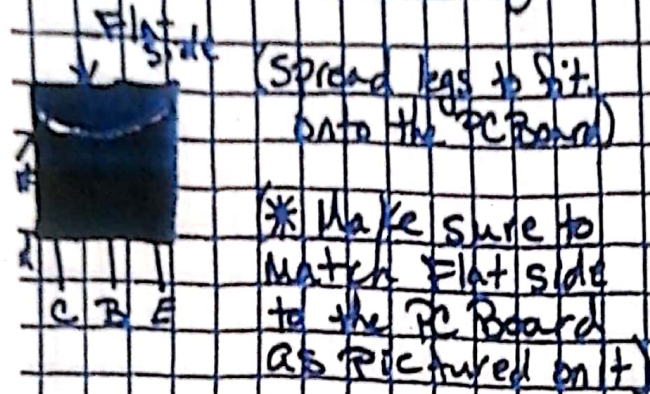 Flat
side
(Spread legs to fit
onto the PC Board)
(* Make sure to
Match Flat side
to the PC Board
as Pictured on it)
C B E